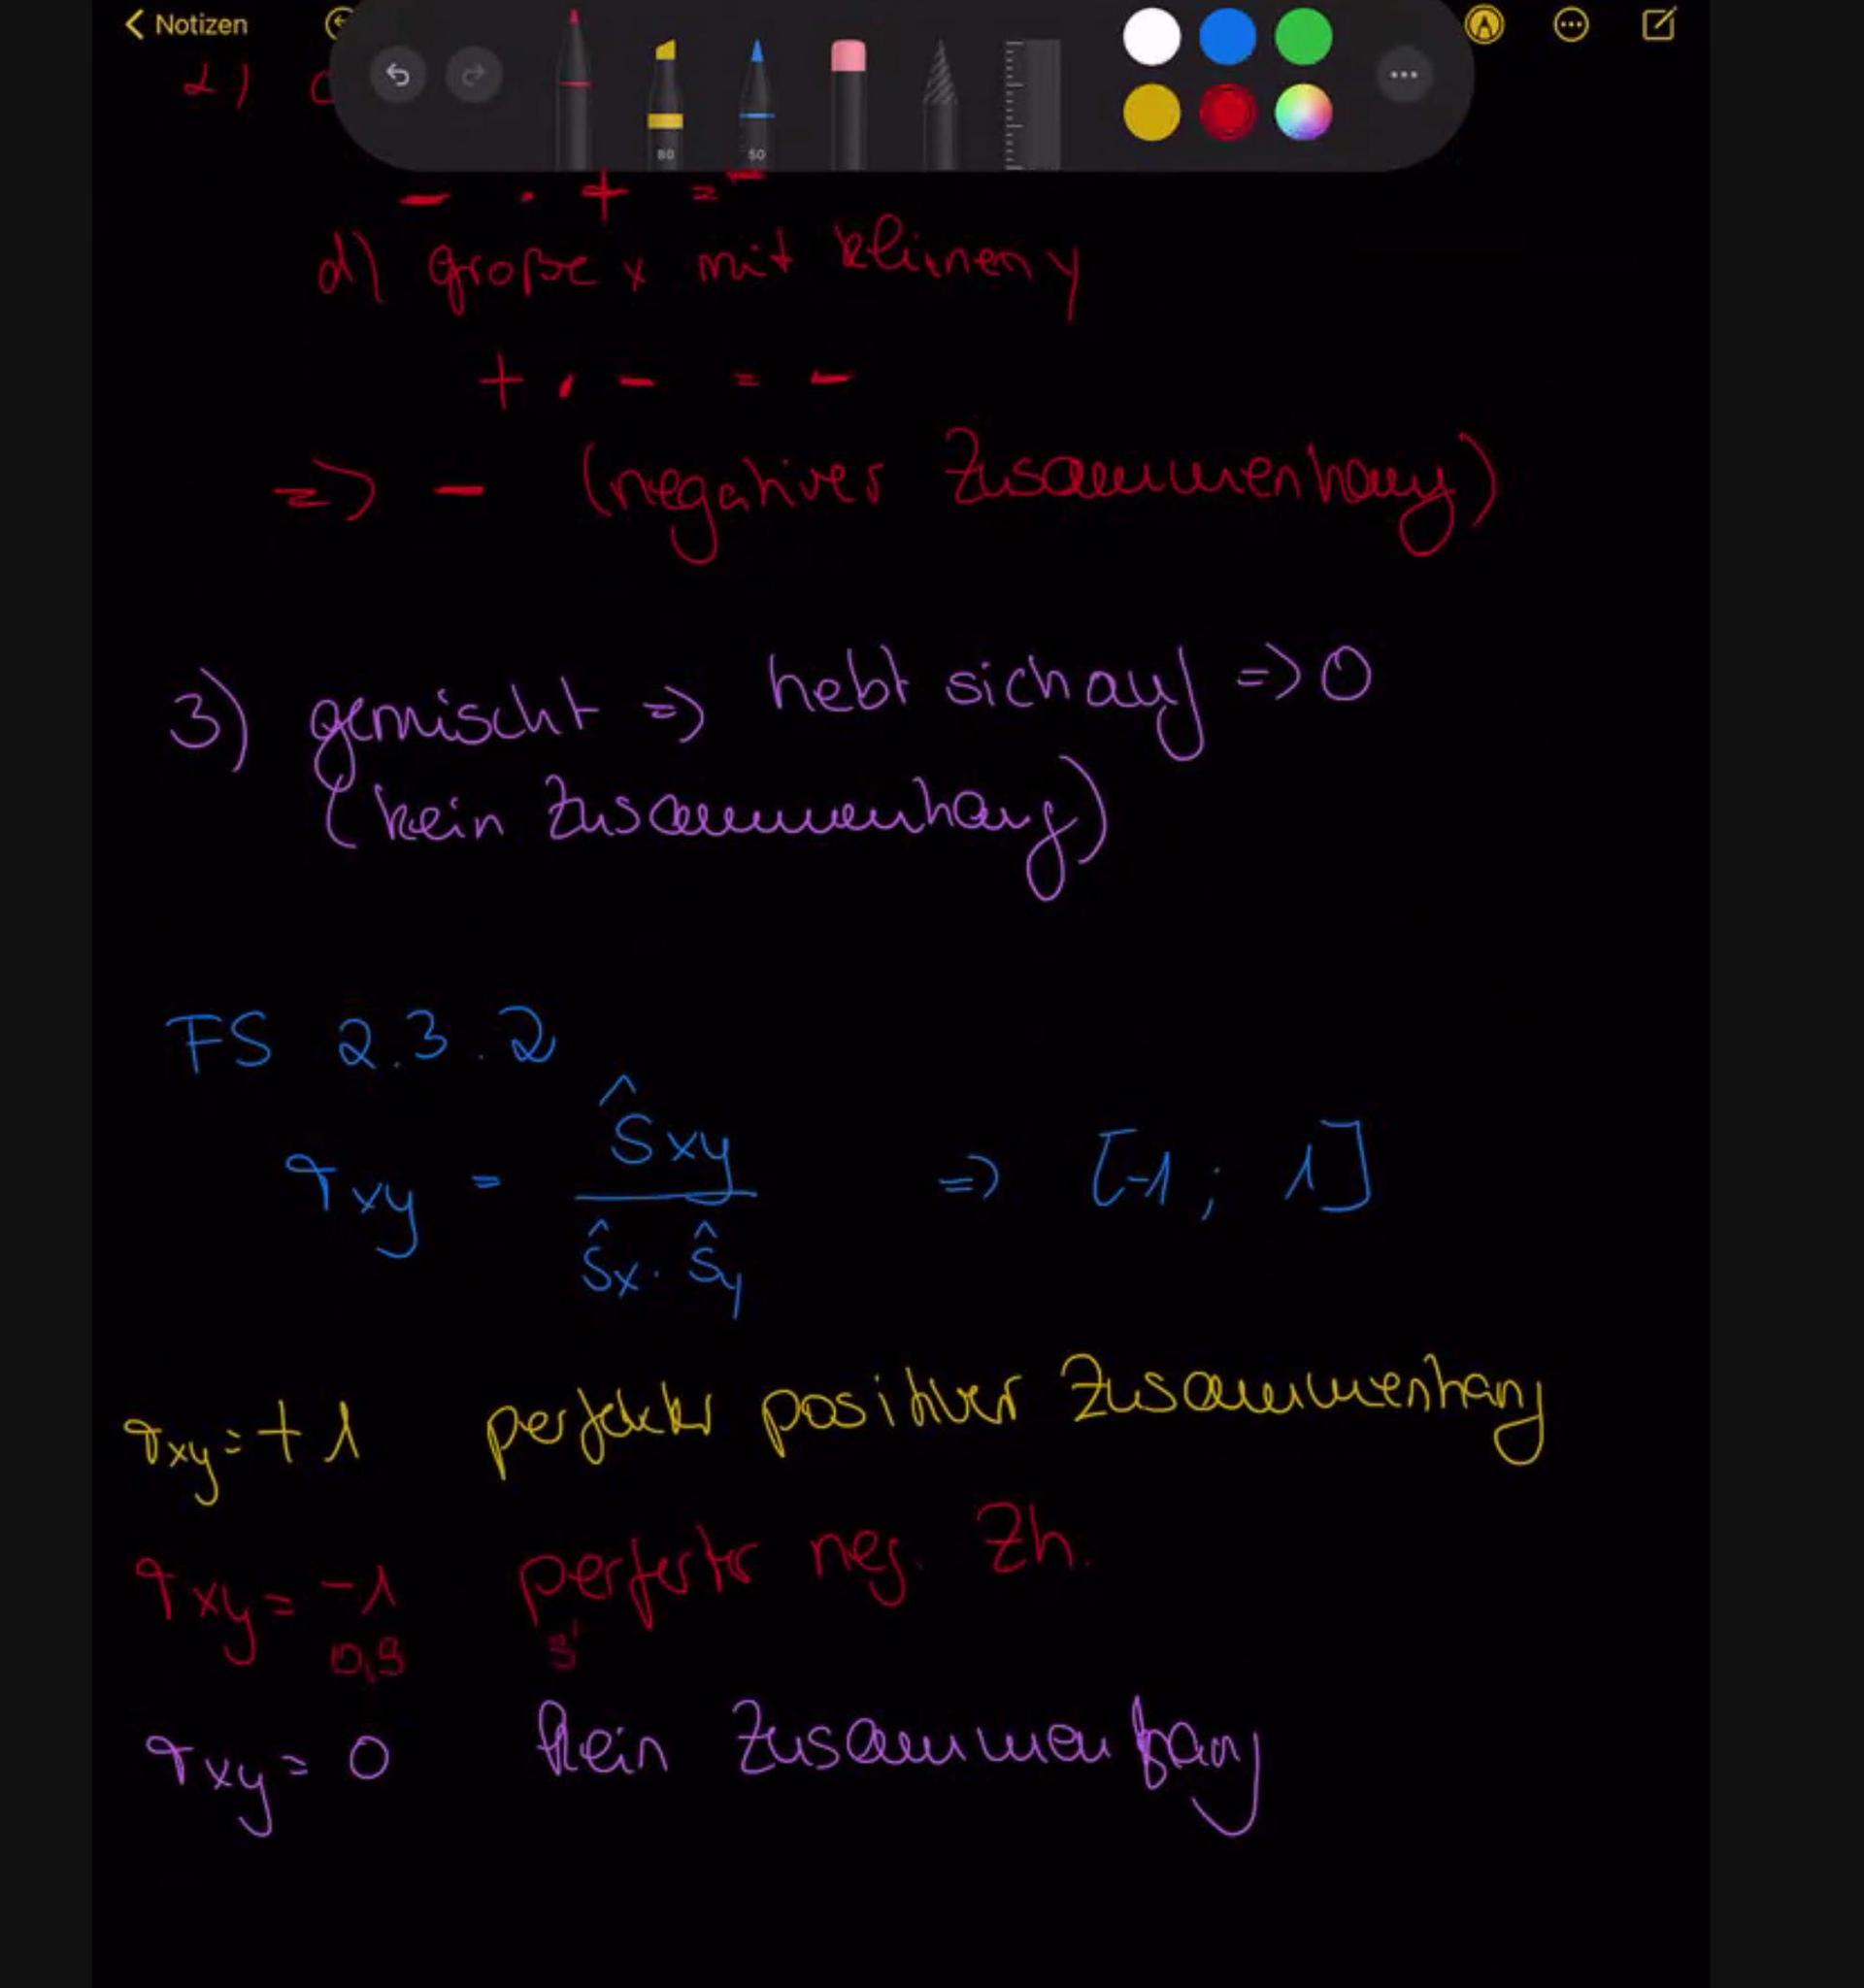 Notizen
2)
80
50
- · + = -
d) große x mit kleinen y
+ · - = -
=> - (negativer Zusammenhang)
3) gemischt => hebt sich auf => 0
(kein Zusammenhang)
FS 2.3.2
rxy = ŝxy / ŝx · ŝy => [-1 ; 1]
rxy = +1 perfekter positiver Zusammenhang
rxy = -1 perfekter neg. Zh.
0,9
rxy = 0 kein Zusammenhang